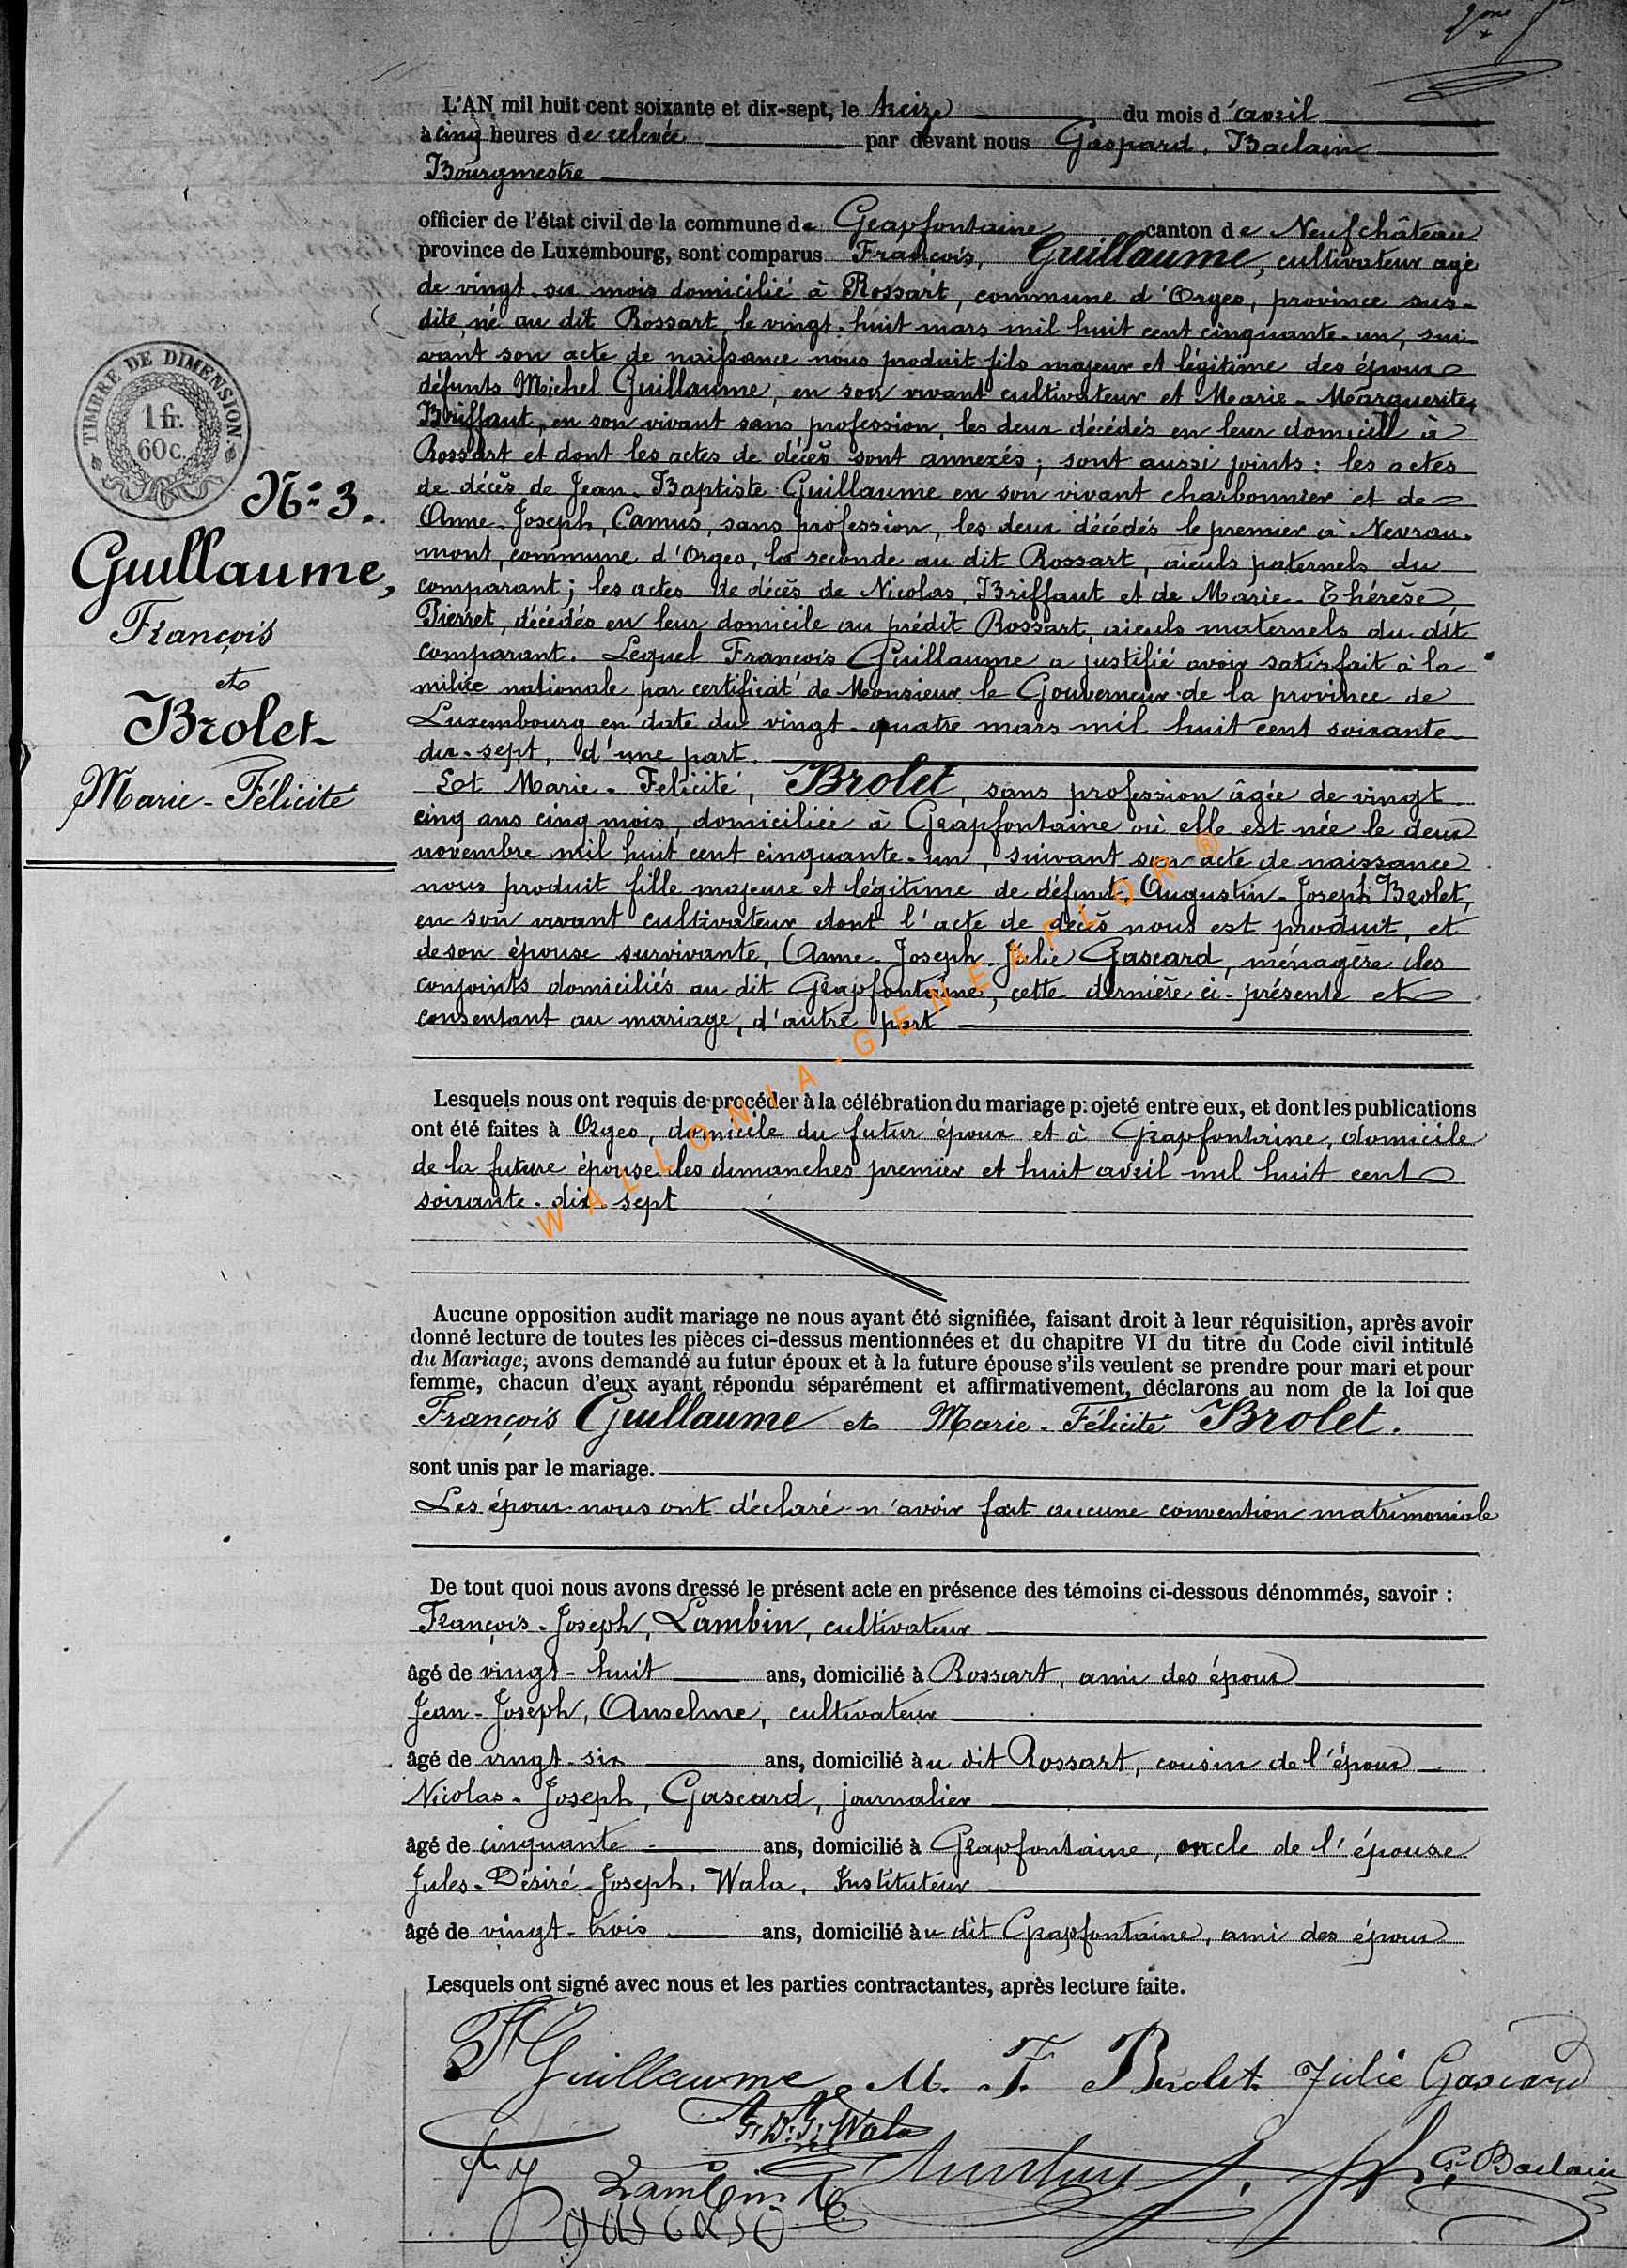 L'AN mil huit cent soixante et dix-sept, le treize du mois d'avril
à cinq heures de relevée par devant nous Gaspard, Baclain
Bourgmestre
officier de l'état civil de la commune de Grapfontaine canton de Neufchâteau
province de Luxembourg, sont comparus François, Guillaume, cultivateur agé
de vingt-six mois domicilié à Rossart, commune d'Orgeo, province sus-
dite, né au dit Rossart, le vingt-huit mars mil huit cent cinquante-un, sui-
vant son acte de naissance nous produit fils majeur et légitime des époux
défunts Michel Guillaume, en son vivant cultivateur et Marie-Marguerite,
Briffaut, en son vivant sans profession, les deux décédés en leur domicile à
Rossart et dont les actes de décès sont annexés; sont aussi joints: les actes
de décès de Jean-Baptiste Guillaume en son vivant charbonnier et de
Anne-Joseph, Camus, sans profession, les deux décédés le premier à Nevrau-
mont, commune d'Orgeo, la seconde au dit Rossart, aieuls paternels du
comparant; les actes de décès de Nicolas, Briffaut et de Marie-Thérèse
Pierret, décédés en leur domicile au prédit Rossart, aieuls maternels du dit
comparant. Lequel François Guillaume a justifié avoir satisfait à la
milice nationale par certificat de Monsieur le Gouverneur de la province de
Luxembourg en date du vingt-quatre mars mil huit cent soixante
dix-sept, d'une part.
Et Marie-Felicité, Brolet, sans profession âgée de vingt
cinq ans cinq mois, domiciliée à Grapfontaine où elle est née le deux
novembre mil huit cent cinquante-un, suivant son acte de naissance
nous produit fille majeure et légitime de défunt Augustin-Joseph Brolet,
en son vivant cultivateur dont l'acte de decès nous est produit, et
de son épouse survivante, Anne-Joseph-Julie Gascard, ménagère les
conjoints domiciliés au dit Grapfontaine, cette dernière ci-présente et
consentant au mariage, d'autre part
Lesquels nous ont requis de procéder à la célébration du mariage projeté entre eux, et dont les publications
ont été faites à Orgeo, domicile du futur époux et à Grapfontaine, domicile
de la future épouse les dimanches premier et huit avril mil huit cent
soixante-dix-sept
Aucune opposition audit mariage ne nous ayant été signifiée, faisant droit à leur réquisition, après avoir
donné lecture de toutes les pièces ci-dessus mentionnées et du chapitre VI du titre du Code civil intitulé
du Mariage, avons demandé au futur époux et à la future épouse s'ils veulent se prendre pour mari et pour
femme, chacun d'eux ayant répondu séparément et affirmativement, déclarons au nom de la loi que
François Guillaume et Marie-Félicité Brolet.
sont unis par le mariage.
Les époux nous ont déclaré n'avoir fait aucune convention matrimoniale
De tout quoi nous avons dressé le présent acte en présence des témoins ci-dessous dénommés, savoir :
François-Joseph, Lambin, cultivateur
âgé de vingt-huit ans, domicilié à Rossart, ami des époux
Jean-Joseph, Anselme, cultivateur
âgé de vingt-six ans, domicilié au dit Rossart, cousin de l'époux
Nicolas-Joseph, Gascard, journalier
âgé de cinquante ans, domicilié à Grapfontaine, oncle de l'épouse
Jules-Désiré-Joseph, Wala, Instituteur
âgé de vingt-trois ans, domicilié au dit Grapfontaine, ami des époux
Lesquels ont signé avec nous et les parties contractantes, après lecture faite.
F Guillaume M. F. Brolet Julie Gascard
Wala
G. Baclain
Lambin
gascard
TIMBRE DE DIMENSION
1 fr.
60 c.
N° 3.
Guillaume,
François
et
Brolet
Marie-Félicité
WALLONIA-GENEAFLOR ®